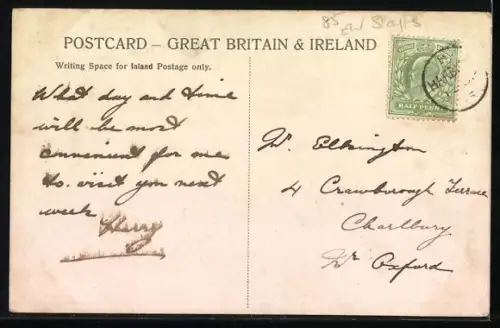 85
POSTCARD – GREAT BRITAIN & IRELAND
Writing Space for Inland Postage only.
HALF PENNY
What day and time
will be most
convenient for me
to visit you next
week
Harry
W. Elkington
4 Crawborough Terrace
Charlbury
Nr Oxford